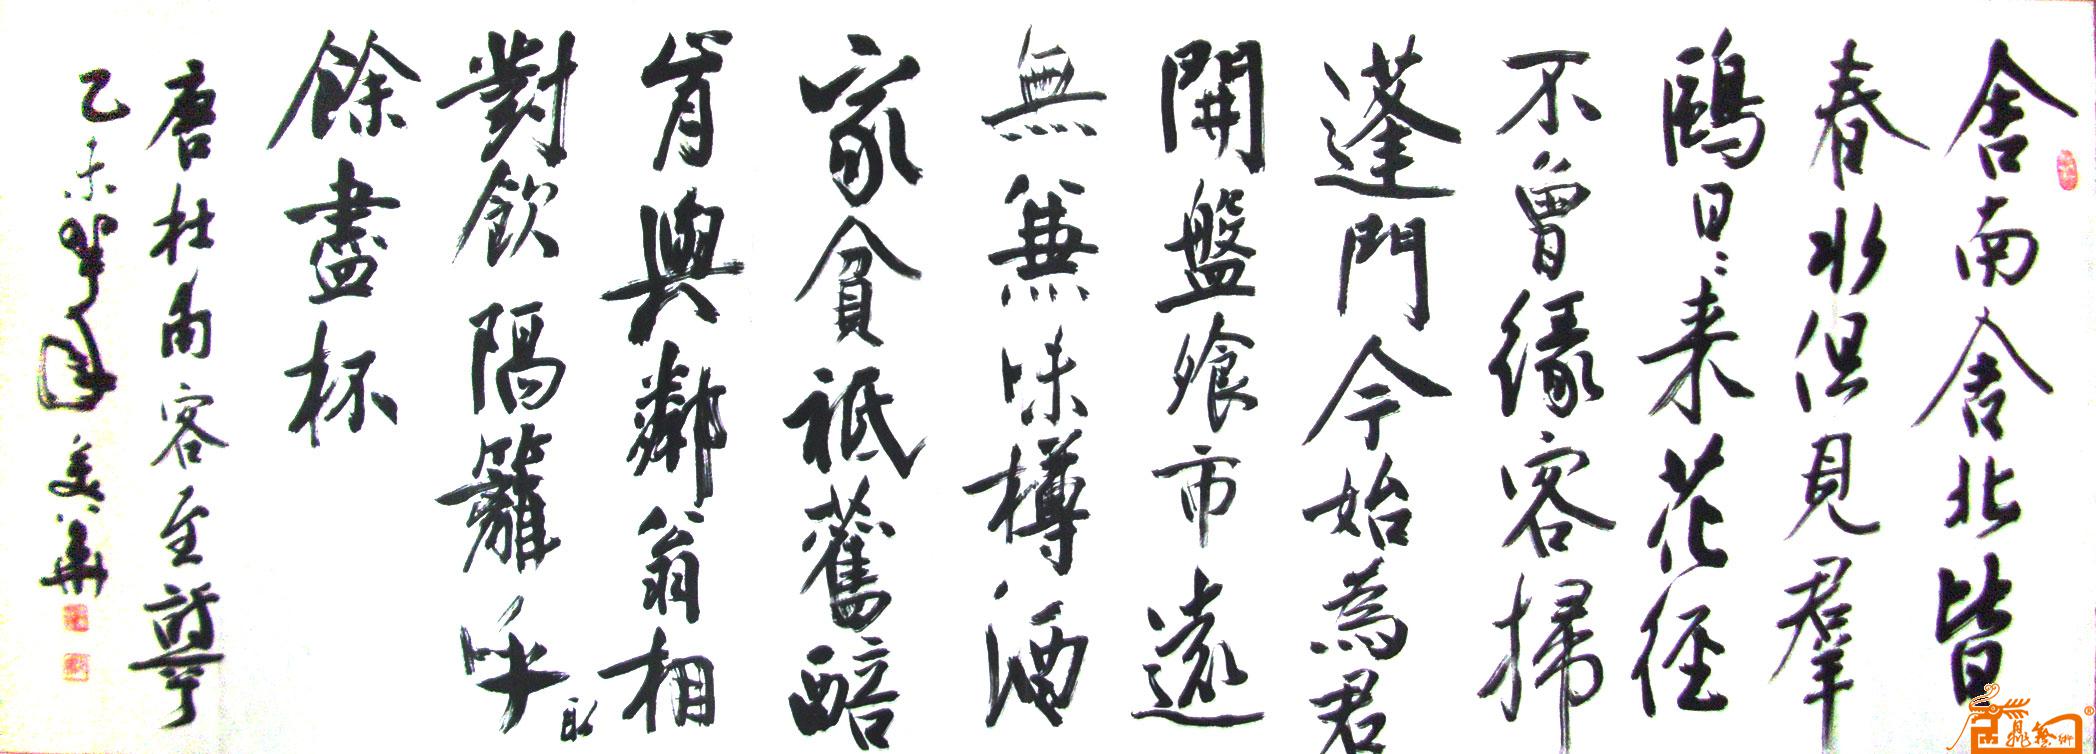 舍南舍北皆
春水但見羣
鷗日〻来花徑
不曾緣客掃
蓬門今始為君
開盤飧市遠
無兼味樽酒
家貧祗舊醅
肯與鄰翁相
對飲隔籬呼取
餘盡杯
唐杜甫客至詩
乙未年美華